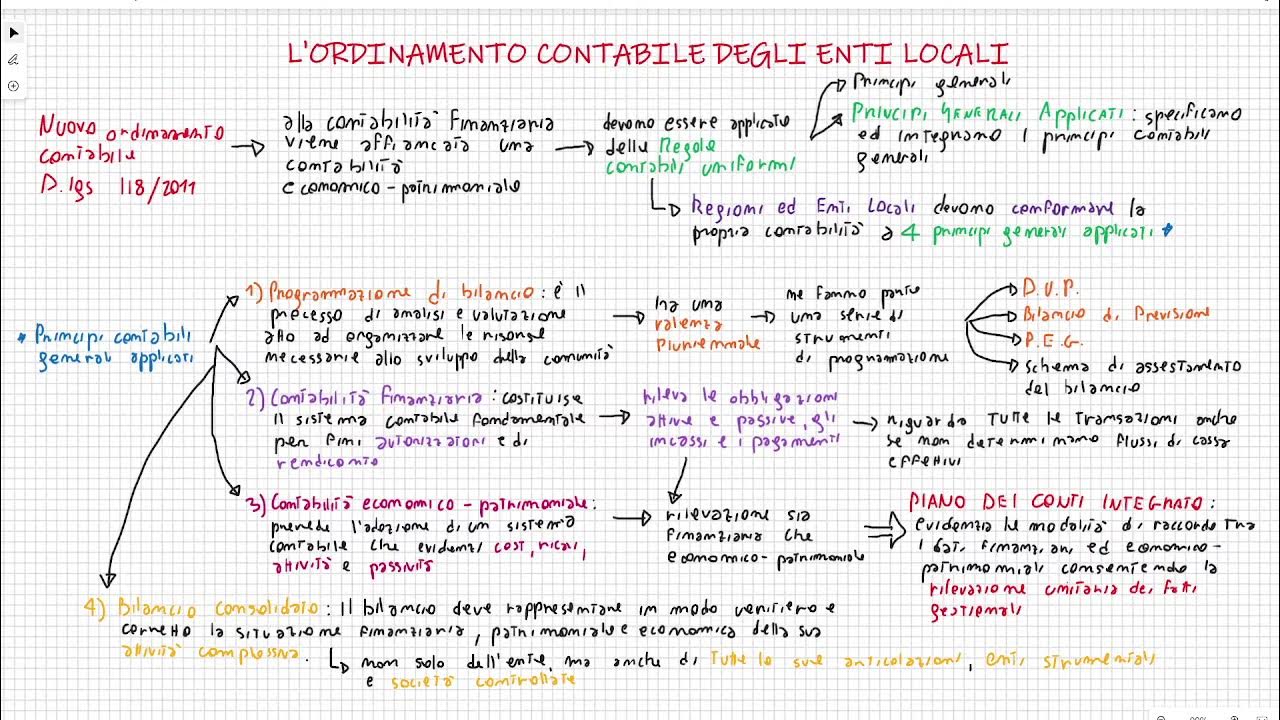 L'ORDINAMENTO CONTABILE DEGLI ENTI LOCALI
Nuovo ordinamento
contabile
D. lgs 118/2011
alla contabilità finanziaria
viene affiancata una
contabilità
economico-patrimoniale
devono essere applicate
delle Regole
contabili uniformi
Principi generali
PRINCIPI GENERALI APPLICATI: specificano
ed integrano i principi contabili
generali
Regioni ed Enti Locali devono conformare la
propria contabilità a 4 principi generali applicati *
* Principi contabili
generali applicati
1) Programmazione di bilancio: è il
processo di analisi e valutazione
atto ad organizzare le risorse
necessarie allo sviluppo della comunità
ha una
valenza
pluriennale
ne fanno parte
una serie di
strumenti
di programmazione
D.U.P.
Bilancio di Previsione
P.E.G.
schema di assestamento
del bilancio
2) Contabilità finanziaria: costituisce
il sistema contabile fondamentale
per fini autorizzatori e di
rendiconto
rileva le obbligazioni
attive e passive, gli
incassi e i pagamenti
riguarda tutte le transazioni anche
se non determinano flussi di cassa
effettivi
3) Contabilità economico-patrimoniale:
prevede l'adozione di un sistema
contabile che evidenzi costi, ricavi,
attività e passività
rilevazione sia
finanziaria che
economico-patrimoniale
PIANO DEI CONTI INTEGRATO:
evidenzia le modalità di raccordo tra
i dati finanziari ed economico-
patrimoniali consentendo la
rilevazione unitaria dei fatti
gestionali
4) Bilancio consolidato: il bilancio deve rappresentare in modo veritiero e
corretto la situazione finanziaria, patrimoniale e economica della sua
attività complessiva.
non solo dell'ente, ma anche di tutte le sue articolazioni, enti strumentali
e società controllate